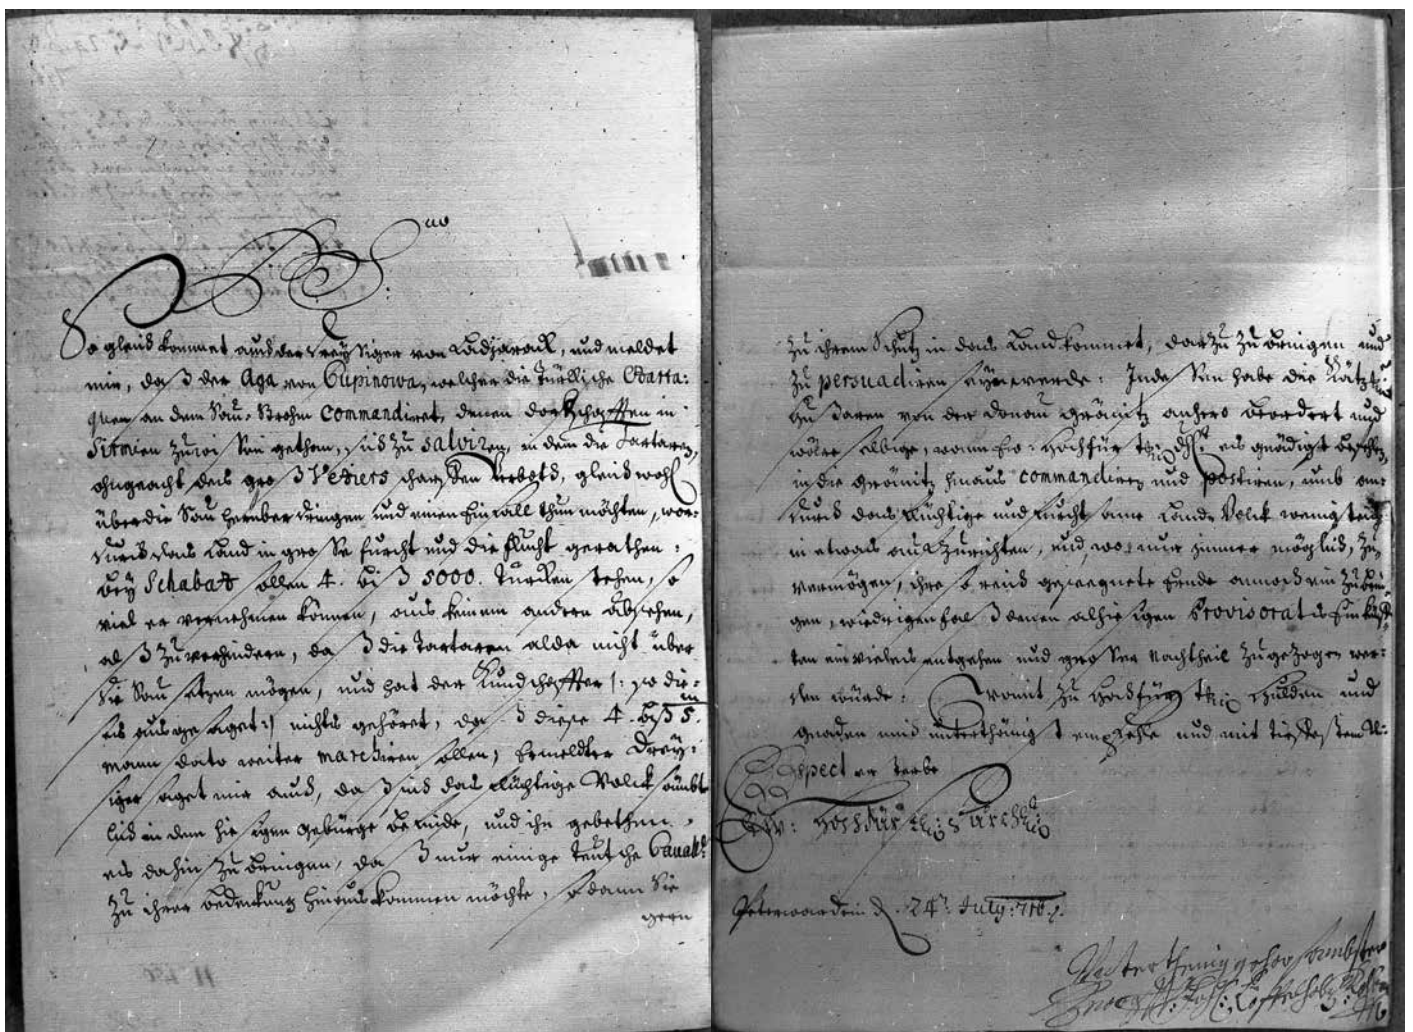 P. S.
So gleich kommet auch der Dreyssiger von Ladjarack, und meldet
mir, daß der Aga von Cupinowa, welcher die Türckische Csarta-
quen an dem Sau-Strohm commandiret, denen dorffschafften in
Sirmien zuwissen gethan, sich zu salviren, in dem die Tartaren,
ohngeacht des groß Veziers scharffen verboths, gleichwohl
über die Sau herüber dringen und einen Einfall thun möchten, wor-
durch das Land in grosse furcht und die flucht gerathen,
bey Schabatz sollen 4. biß 5000. Türcken stehen, so
viel er vernehmen können, aus keinem andern absehen,
alß zu verhindern, daß die Tartaren alda nicht über
die Sau setzen mögen, und hat der Kundschaffter /: so die-
ses ausgesaget :/ nichts gehöret, daß diese 4. biß 5.
mann dato weiter marchiren sollen; Ermeldter Drey-
siger saget mir auch, daß sich das flüchtige Volck sämbt-
lich in dem hiesigen Gebürge befinde, und ihn gebethen,
es dahin zu bringen, daß nur einige Teutsche Cavall:
zu ihrer bedeckung hinaus kommen möchte, so dann Sie
gern
zu ihrem Schutz in das Land kommet, darzu zu bringen und
zu persuadiren seyn werde: Indessen habe die Rätzl:
Husaren von der donau gränitz anhero beordert und
wolte selbige, wann Ew: Hochfürstl: dhlt: es gnädigst befehlen,
in die gränitz hinaus commandiren und postiren, umb
durch das flüchtige und forchtsame Land-Volck wenigstens
in etwas aufzurichten, und, wo nur immer möglich, zu
vermögen, ihre so reich geseegnete Ernde annoch einzubrin-
gen, wiedrigenfalß denen alhiesigen Provisorats Einkünff-
ten ein vieles entgehen und grosser Nachtheil zugezogen wer-
den würde. Womit zu Hochfürstl: Hulden und
gnaden mich unterthänigst empfehle und mit tieffestem Re-
spect ersterbe
Ew: Hochfürstl: Durchl:
Peterwardein d. 24t July 716.
Unterthenig gehorsambster